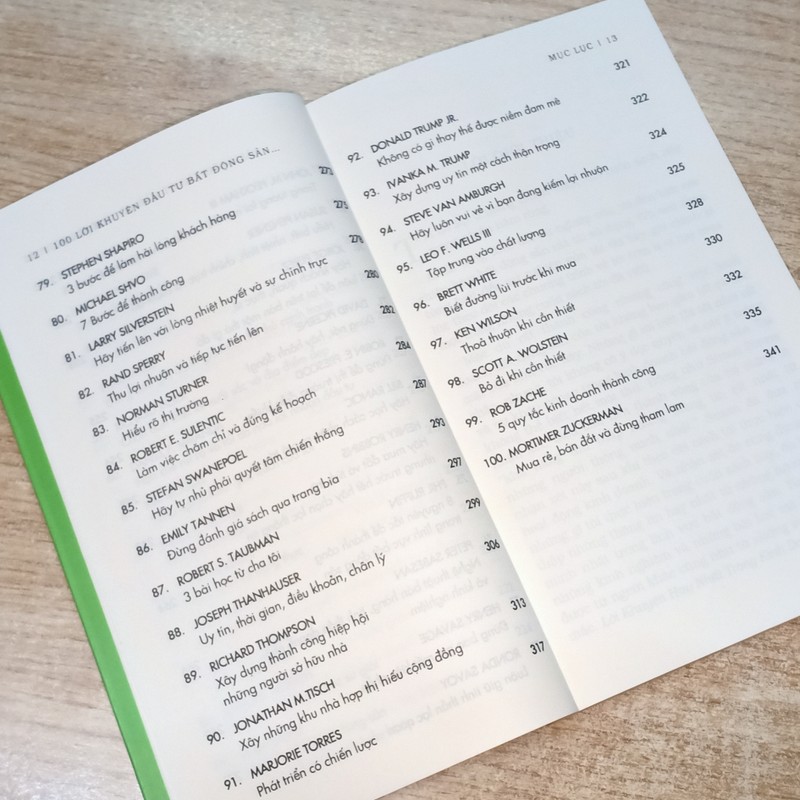 12 | 100 LỜI KHUYÊN ĐẦU TƯ BẤT ĐỘNG SẢN...
79. STEPHEN SHAPIRO 273
3 bước để làm hài lòng khách hàng
80. MICHAEL SHVO 275
7 Bước để thành công
81. LARRY SILVERSTEIN 278
Hãy tiến lên với lòng nhiệt huyết và sự chính trực
82. RAND SPERRY 280
Thu lợi nhuận và tiếp tục tiến lên
83. NORMAN STURNER 282
Hiểu rõ thị trường
84. ROBERT E. SULENTIC 284
Làm việc chăm chỉ và đúng kế hoạch
85. STEFAN SWANEPOEL 287
Hãy tự nhủ phải quyết tâm chiến thắng
86. EMILY TANNEN 293
Đừng đánh giá sách qua trang bìa
87. ROBERT S. TAUBMAN 297
3 bài học từ cha tôi
88. JOSEPH THANHAUSER 299
Uy tín, thời gian, điều khoản, chân lý
89. RICHARD THOMPSON 306
Xây dựng thành công hiệp hội
những người sở hữu nhà
90. JONATHAN M.TISCH 313
Xây những khu nhà hợp thị hiếu cộng đồng
91. MARJORIE TORRES 317
Phát triển có chiến lược
MỤC LỤC | 13
92. DONALD TRUMP JR. 321
Không có gì thay thế được niềm đam mê
93. IVANKA M. TRUMP 322
Xây dựng uy tín một cách thận trọng
94. STEVE VAN AMBURGH 324
Hãy luôn vui vẻ vì bạn đang kiếm lợi nhuận
95. LEO F. WELLS III 325
Tập trung vào chất lượng
96. BRETT WHITE 328
Biết đường lùi trước khi mua
97. KEN WILSON 330
Thoả thuận khi cần thiết
98. SCOTT A. WOLSTEIN 332
Bỏ đi khi cần thiết
99. ROB ZACHE 335
5 quy tắc kinh doanh thành công
100. MORTIMER ZUCKERMAN 341
Mua rẻ, bán đắt và đừng tham lam